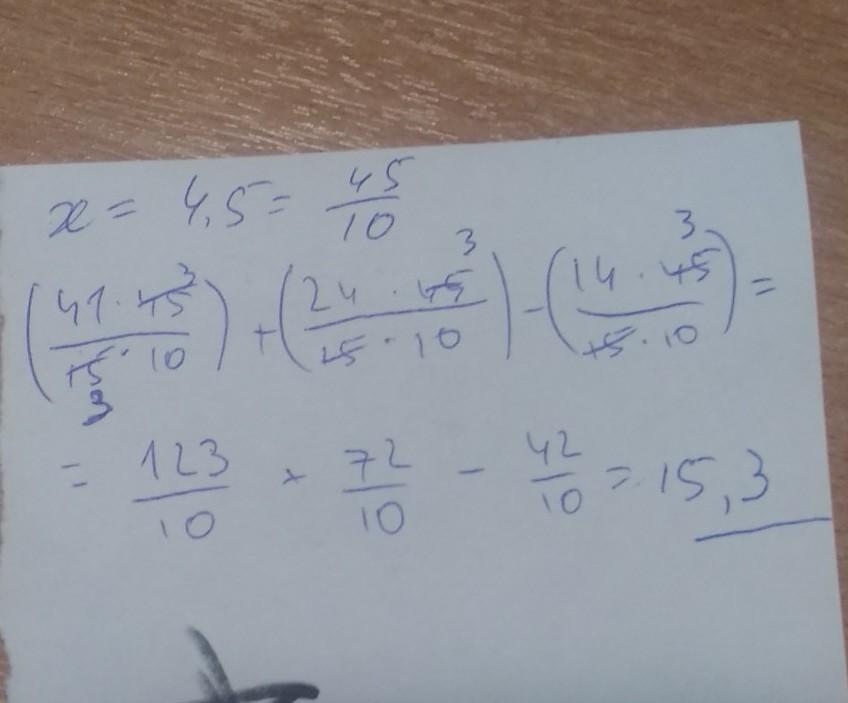 x = 4,5 = 45/10
(41 · 45 3 / 15 3 · 10) + (24 · 45 3 / 15 · 10) - (14 · 45 3 / 15 · 10) =
= 123/10 + 72/10 - 42/10 = 15,3